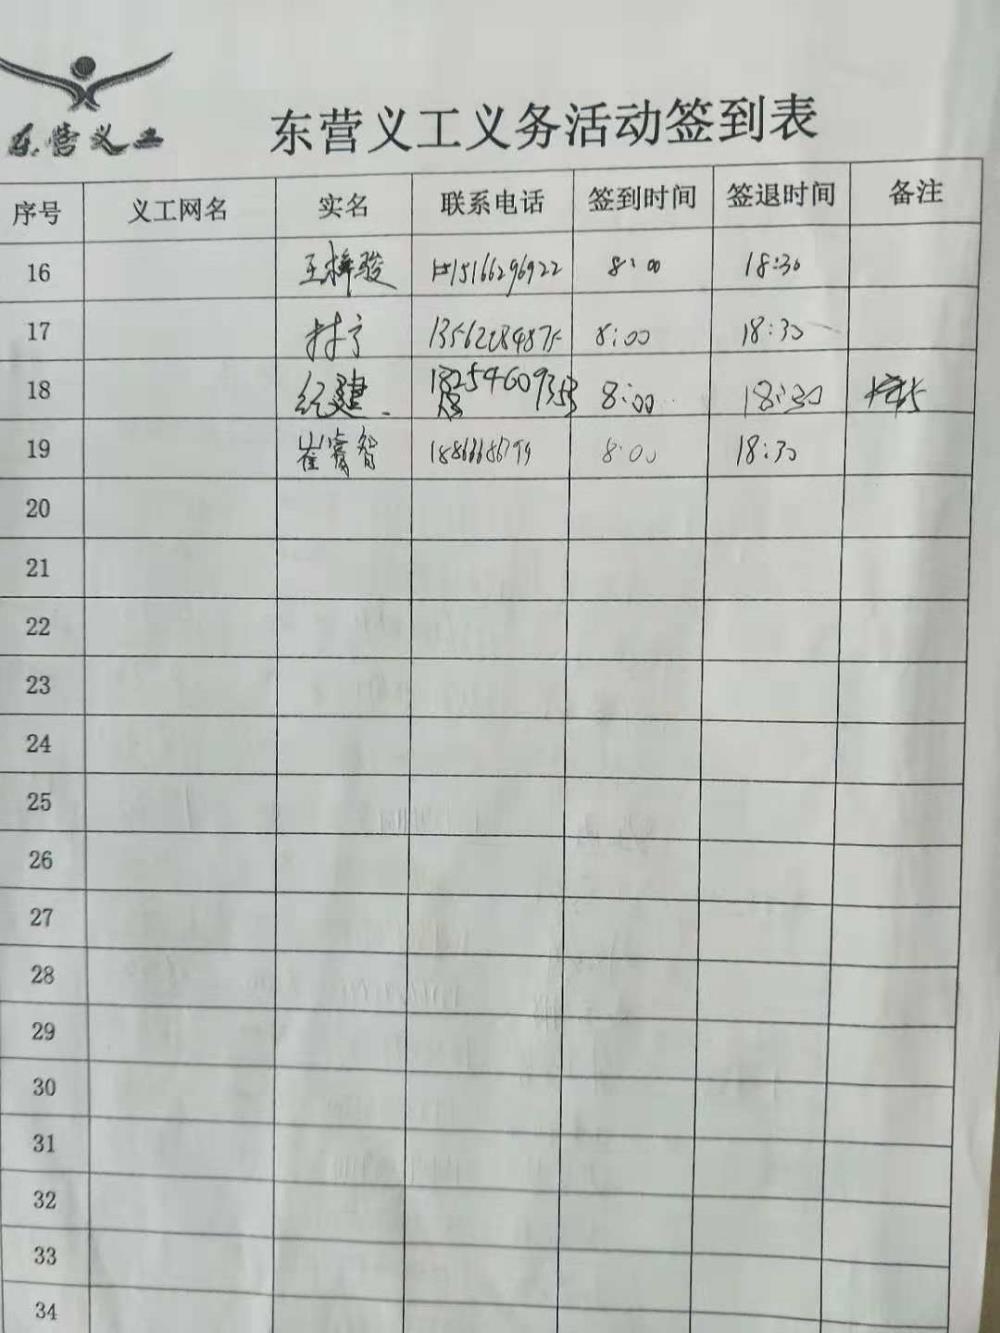 东营义工
东营义工义务活动签到表
序号 义工网名 实名 联系电话 签到时间 签退时间 备注
16 王梓骏 15166296922 8:00 18:30
17 8:00 18:30
18 纪建 8:00 18:30
19 崔 智 8:00 18:30
20
21
22
23
24
25
26
27
28
29
30
31
32
33
34